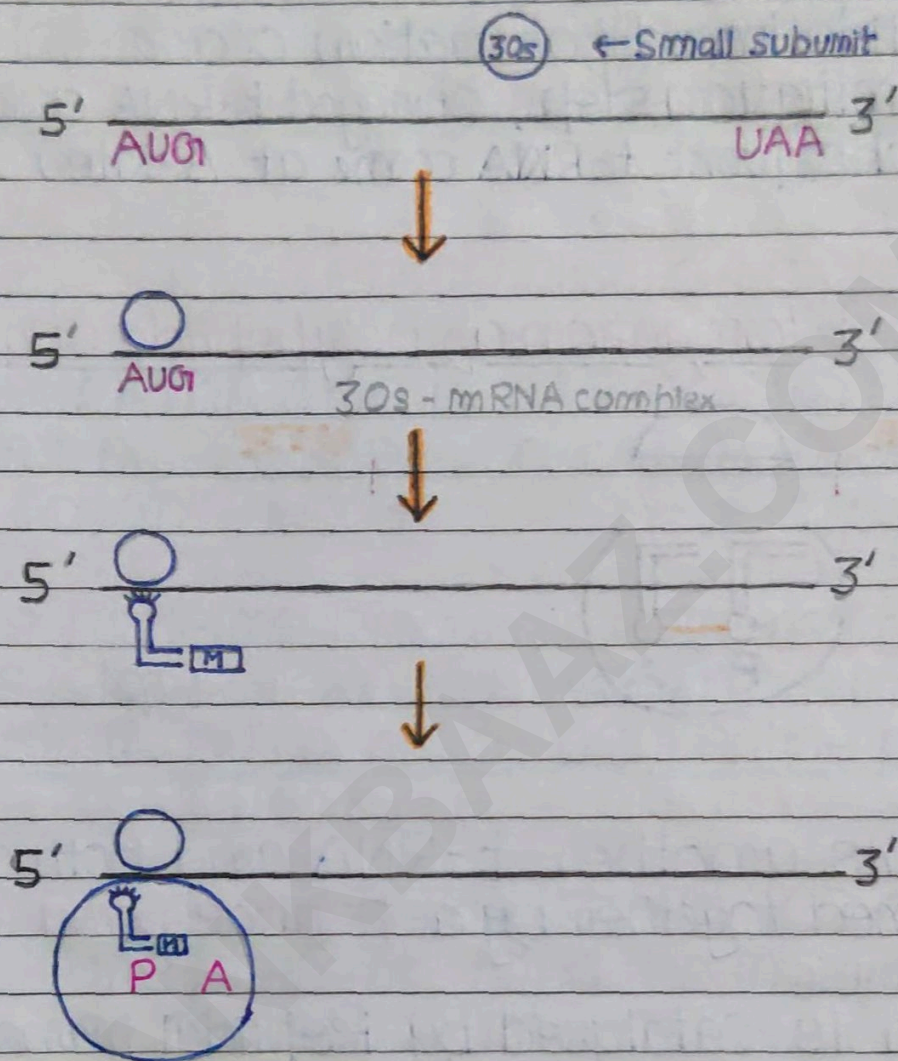 30s ← Small subunit
5' 3'
AUG UAA
5' 3'
AUG
30s - mRNA complex
5' 3'
M
5' 3'
M
P A